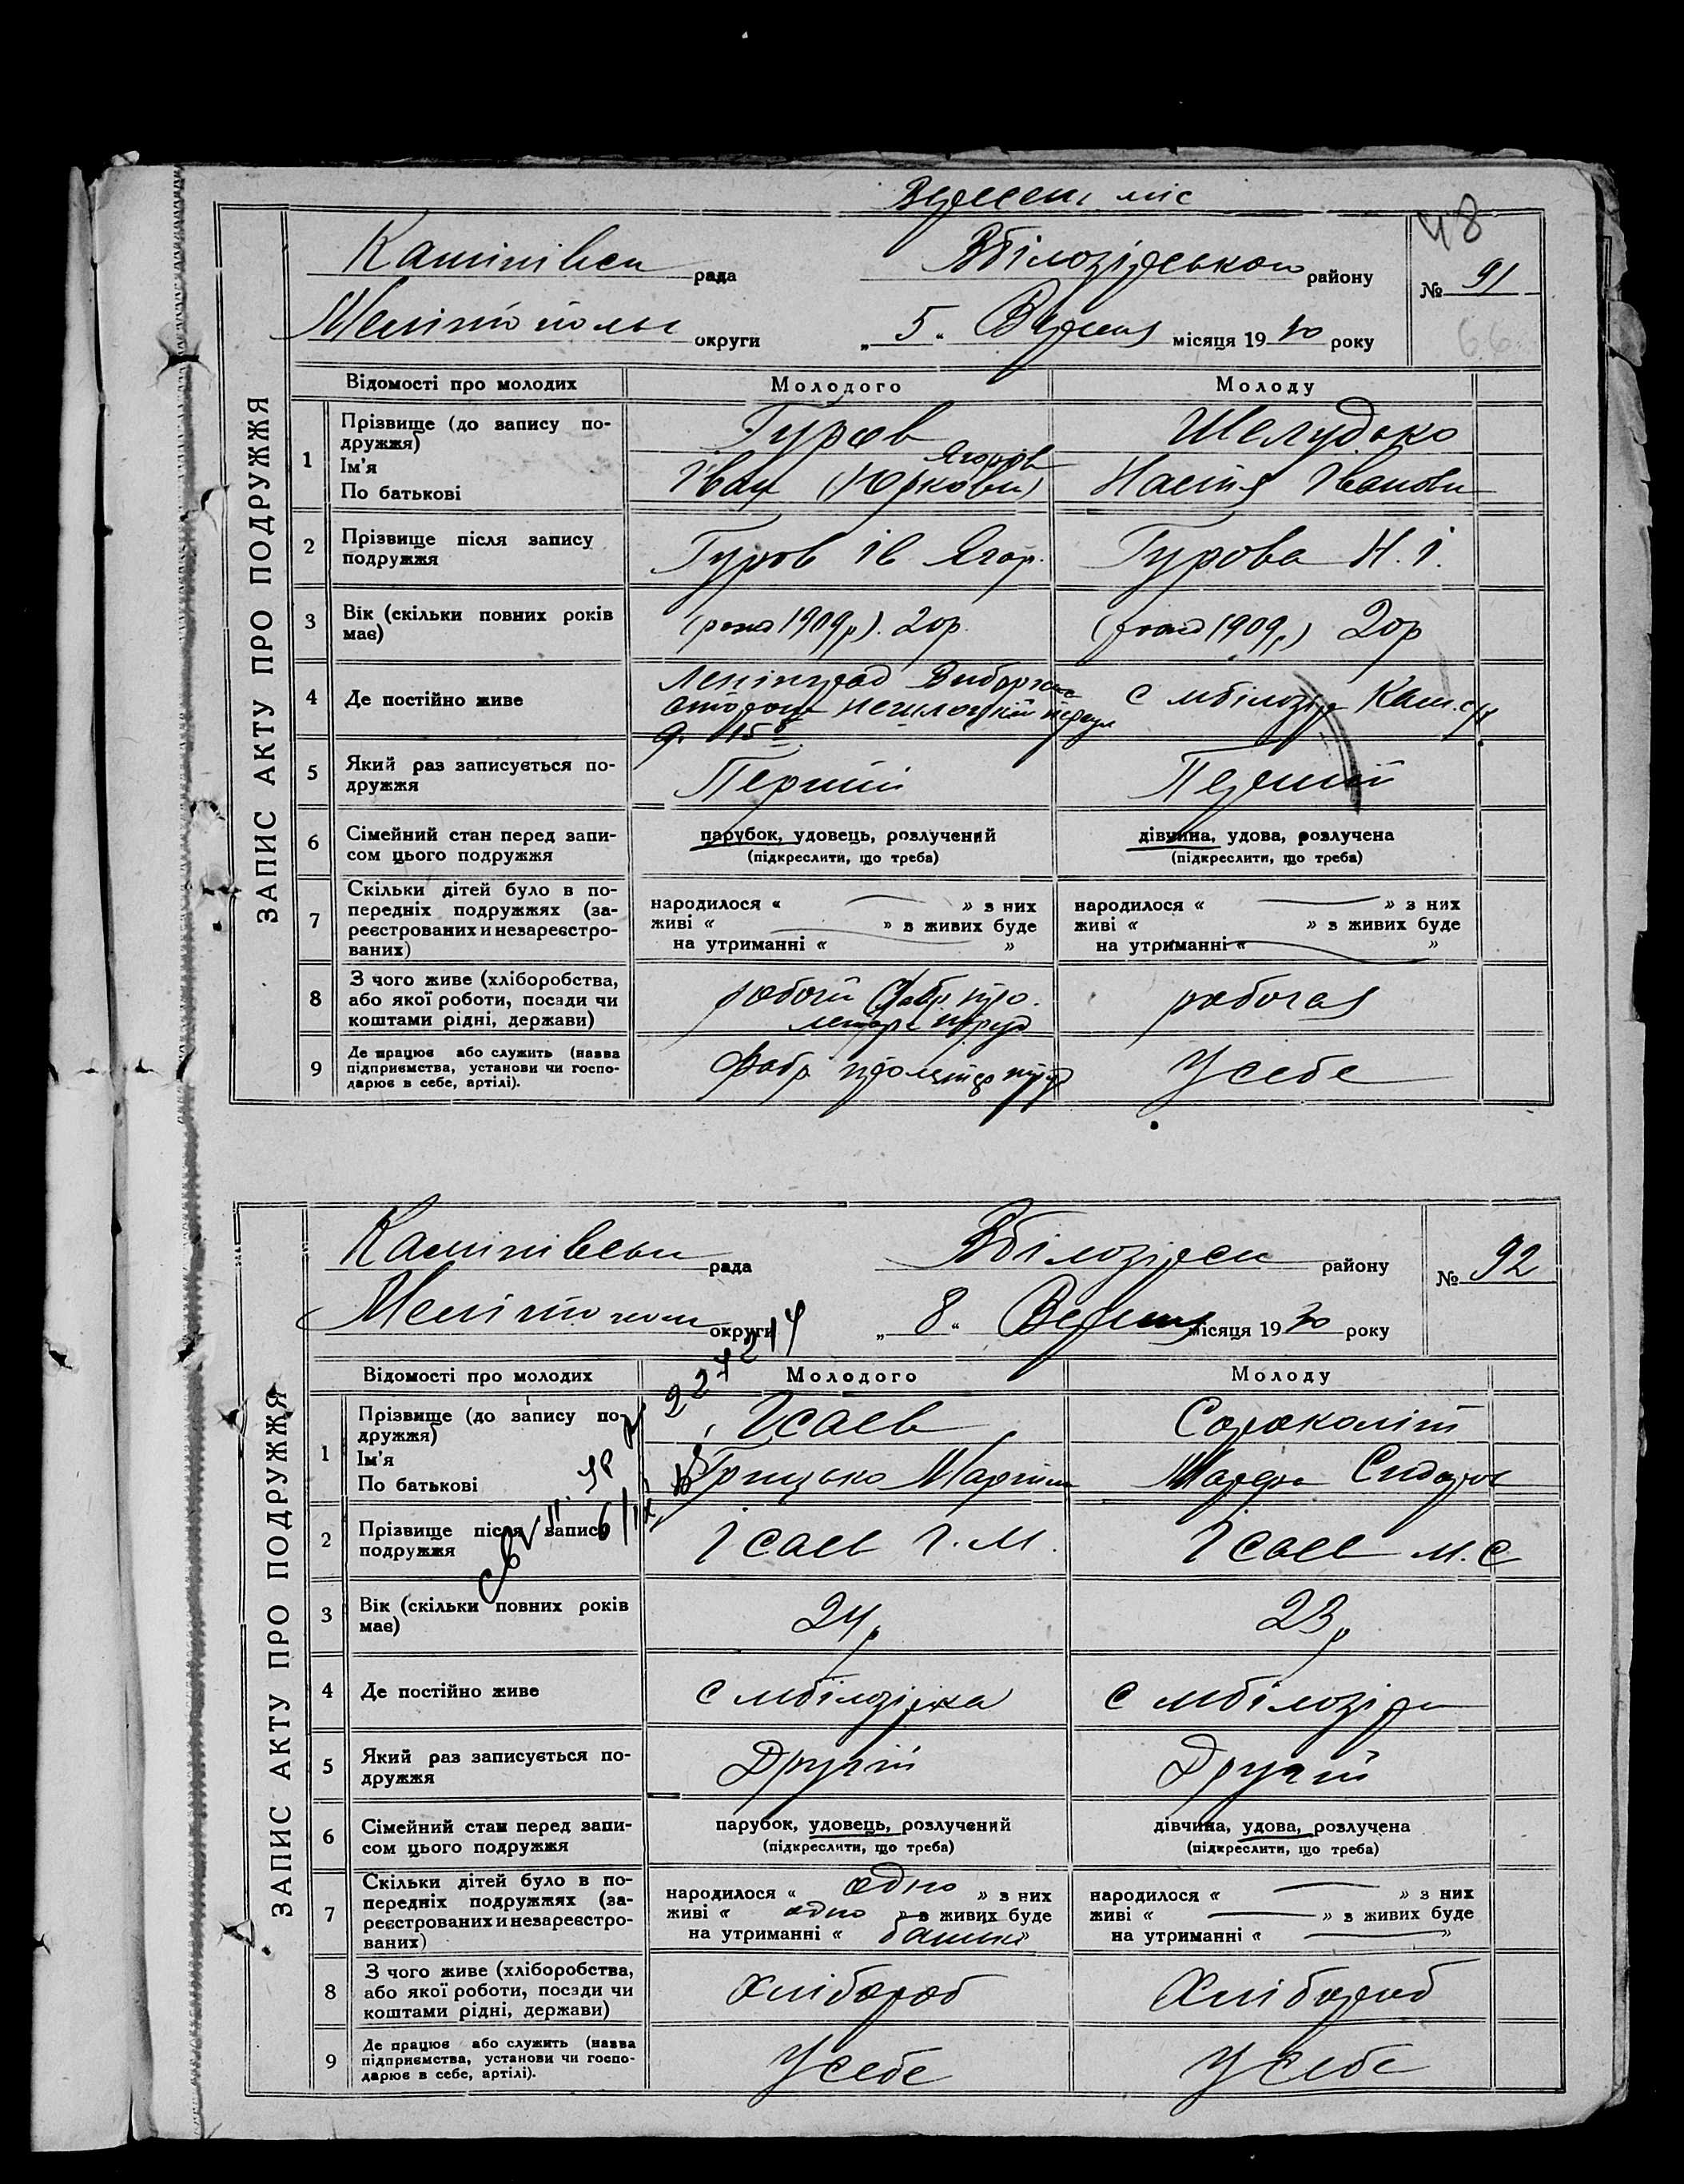 Вересень міс
48
ЗАПИС АКТУ ПРО ПОДРУЖЖЯ
рада
Вбілозірського району
№ 91
66
Мелітополь округи
„ 5 “ Вересня місяця 1930 року
Відомості про молодих Молодого Молоду
1 Прізвище (до запису по-
дружжя)
Ім'я
По батькові
Гуров
Ягоров
Іван (Юркови)
Шелудько
Настя Іванови
2 Прізвище після запису
подружжя
Гуров Ів. Ягор.
Гурова Н. І.
3 Вік (скільки повних років
має)
1909 р). 20р.
1909р) 20р
4 Де постійно живе
Ленінград
с мбілозір Кам. с/р.
5 Який раз записується по-
дружжя
Перший
Перший
6 Сімейний стан перед запи-
сом цього подружжя
парубок, удовець, розлучений
(підкреслити, що треба)
дівчина, удова, розлучена
(підкреслити, що треба)
7 Скільки дітей було в по-
передніх подружжях (за-
реєстрованих и незареєстро-
ваних)
народилося « » з них
живі « » в живих буде
на утриманні « »
народилося « » з них
живі « » з живих буде
на утриманні « »
8 З чого живе (хліборобства,
або якої роботи, посади чи
коштами рідні, держави)
рабочая
9 Де працює або служить (назва
підприємства, установи чи госпо-
дарює в себе, артілі).
Усебе
ЗАПИС АКТУ ПРО ПОДРУЖЖЯ
рада
Вбілозірск району
№ 92
Мелітопол округи
„ 8 “ Вересня місяця 1930 року
Відомості про молодих Молодого Молоду
1 Прізвище (до запису по-
дружжя)
Ім'я
По батькові
Ісаєв
Грицько Мартин
Сороколіт
Марфа Сидоров
2 Прізвище після запису
подружжя
Ісаєв Г. М.
Ісаєв М. С
3 Вік (скільки повних років
має)
24р
23р
4 Де постійно живе
с мбілозірка
с мбілозірк
5 Який раз записується по-
дружжя
Другій
Другий
6 Сімейний стан перед запи-
сом цього подружжя
парубок, удовець, розлучений
(підкреслити, що треба)
дівчина, удова, розлучена
(підкреслити, що треба)
7 Скільки дітей було в по-
передніх подружжях (за-
реєстрованих и незареєстро-
ваних)
народилося « одно » з них
живі « одно » в живих буде
на утриманні « батьки »
народилося « » з них
живі « » з живих буде
на утриманні « »
8 З чого живе (хліборобства,
або якої роботи, посади чи
коштами рідні, держави)
Хлібороб
Хлібороб
9 Де працює або служить (назва
підприємства, установи чи госпо-
дарює в себе, артілі).
Усебе
Усебе